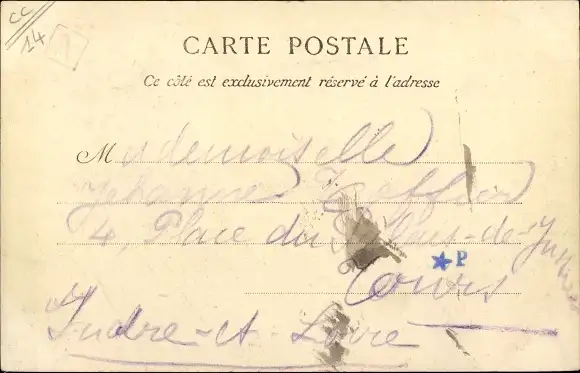 CC
14
1
CARTE POSTALE
Ce côté est exclusivement réservé à l'adresse
Mademoiselle
4, Place du Palais-de-Justice
P
Tours
Indre-et-Loire